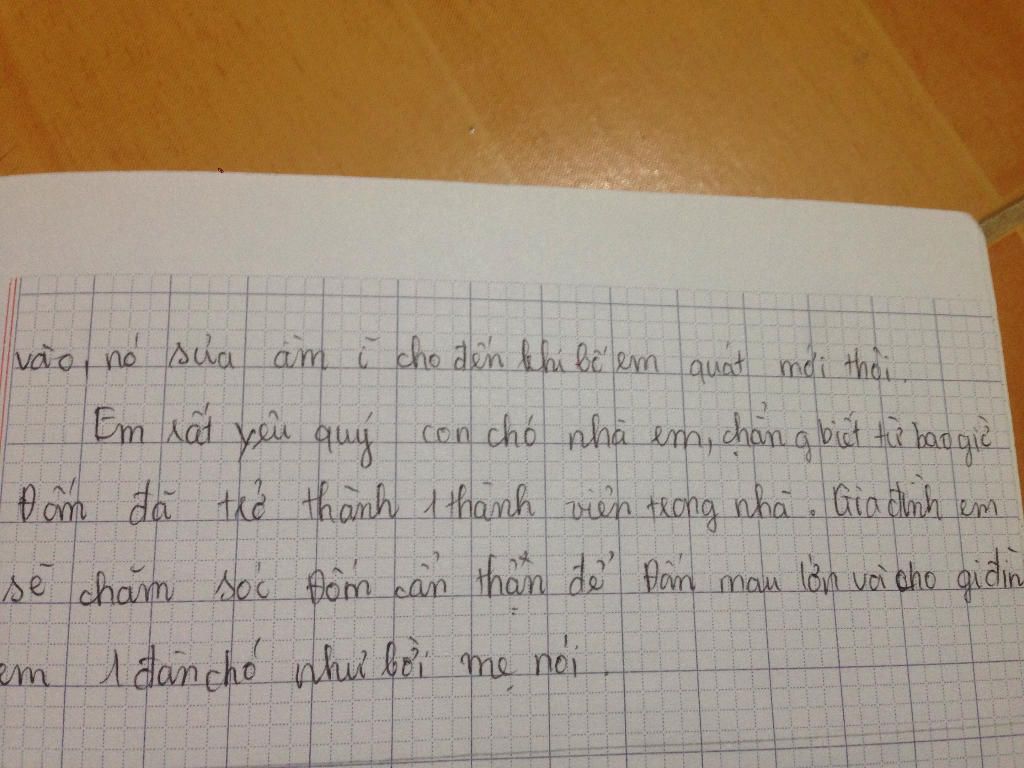 vào, nó sủa ầm ĩ cho đến khi bố em quát mới thôi.
Em rất yêu quý con chó nhà em, chẳng biết từ bao giờ
Đốm đã trở thành 1 thành viên trong nhà. Gia đình em
sẽ chăm sóc Đốm cẩn thận để Đốm mau lớn và cho gi đìn
em 1 đàn chó như bởi mẹ nói.